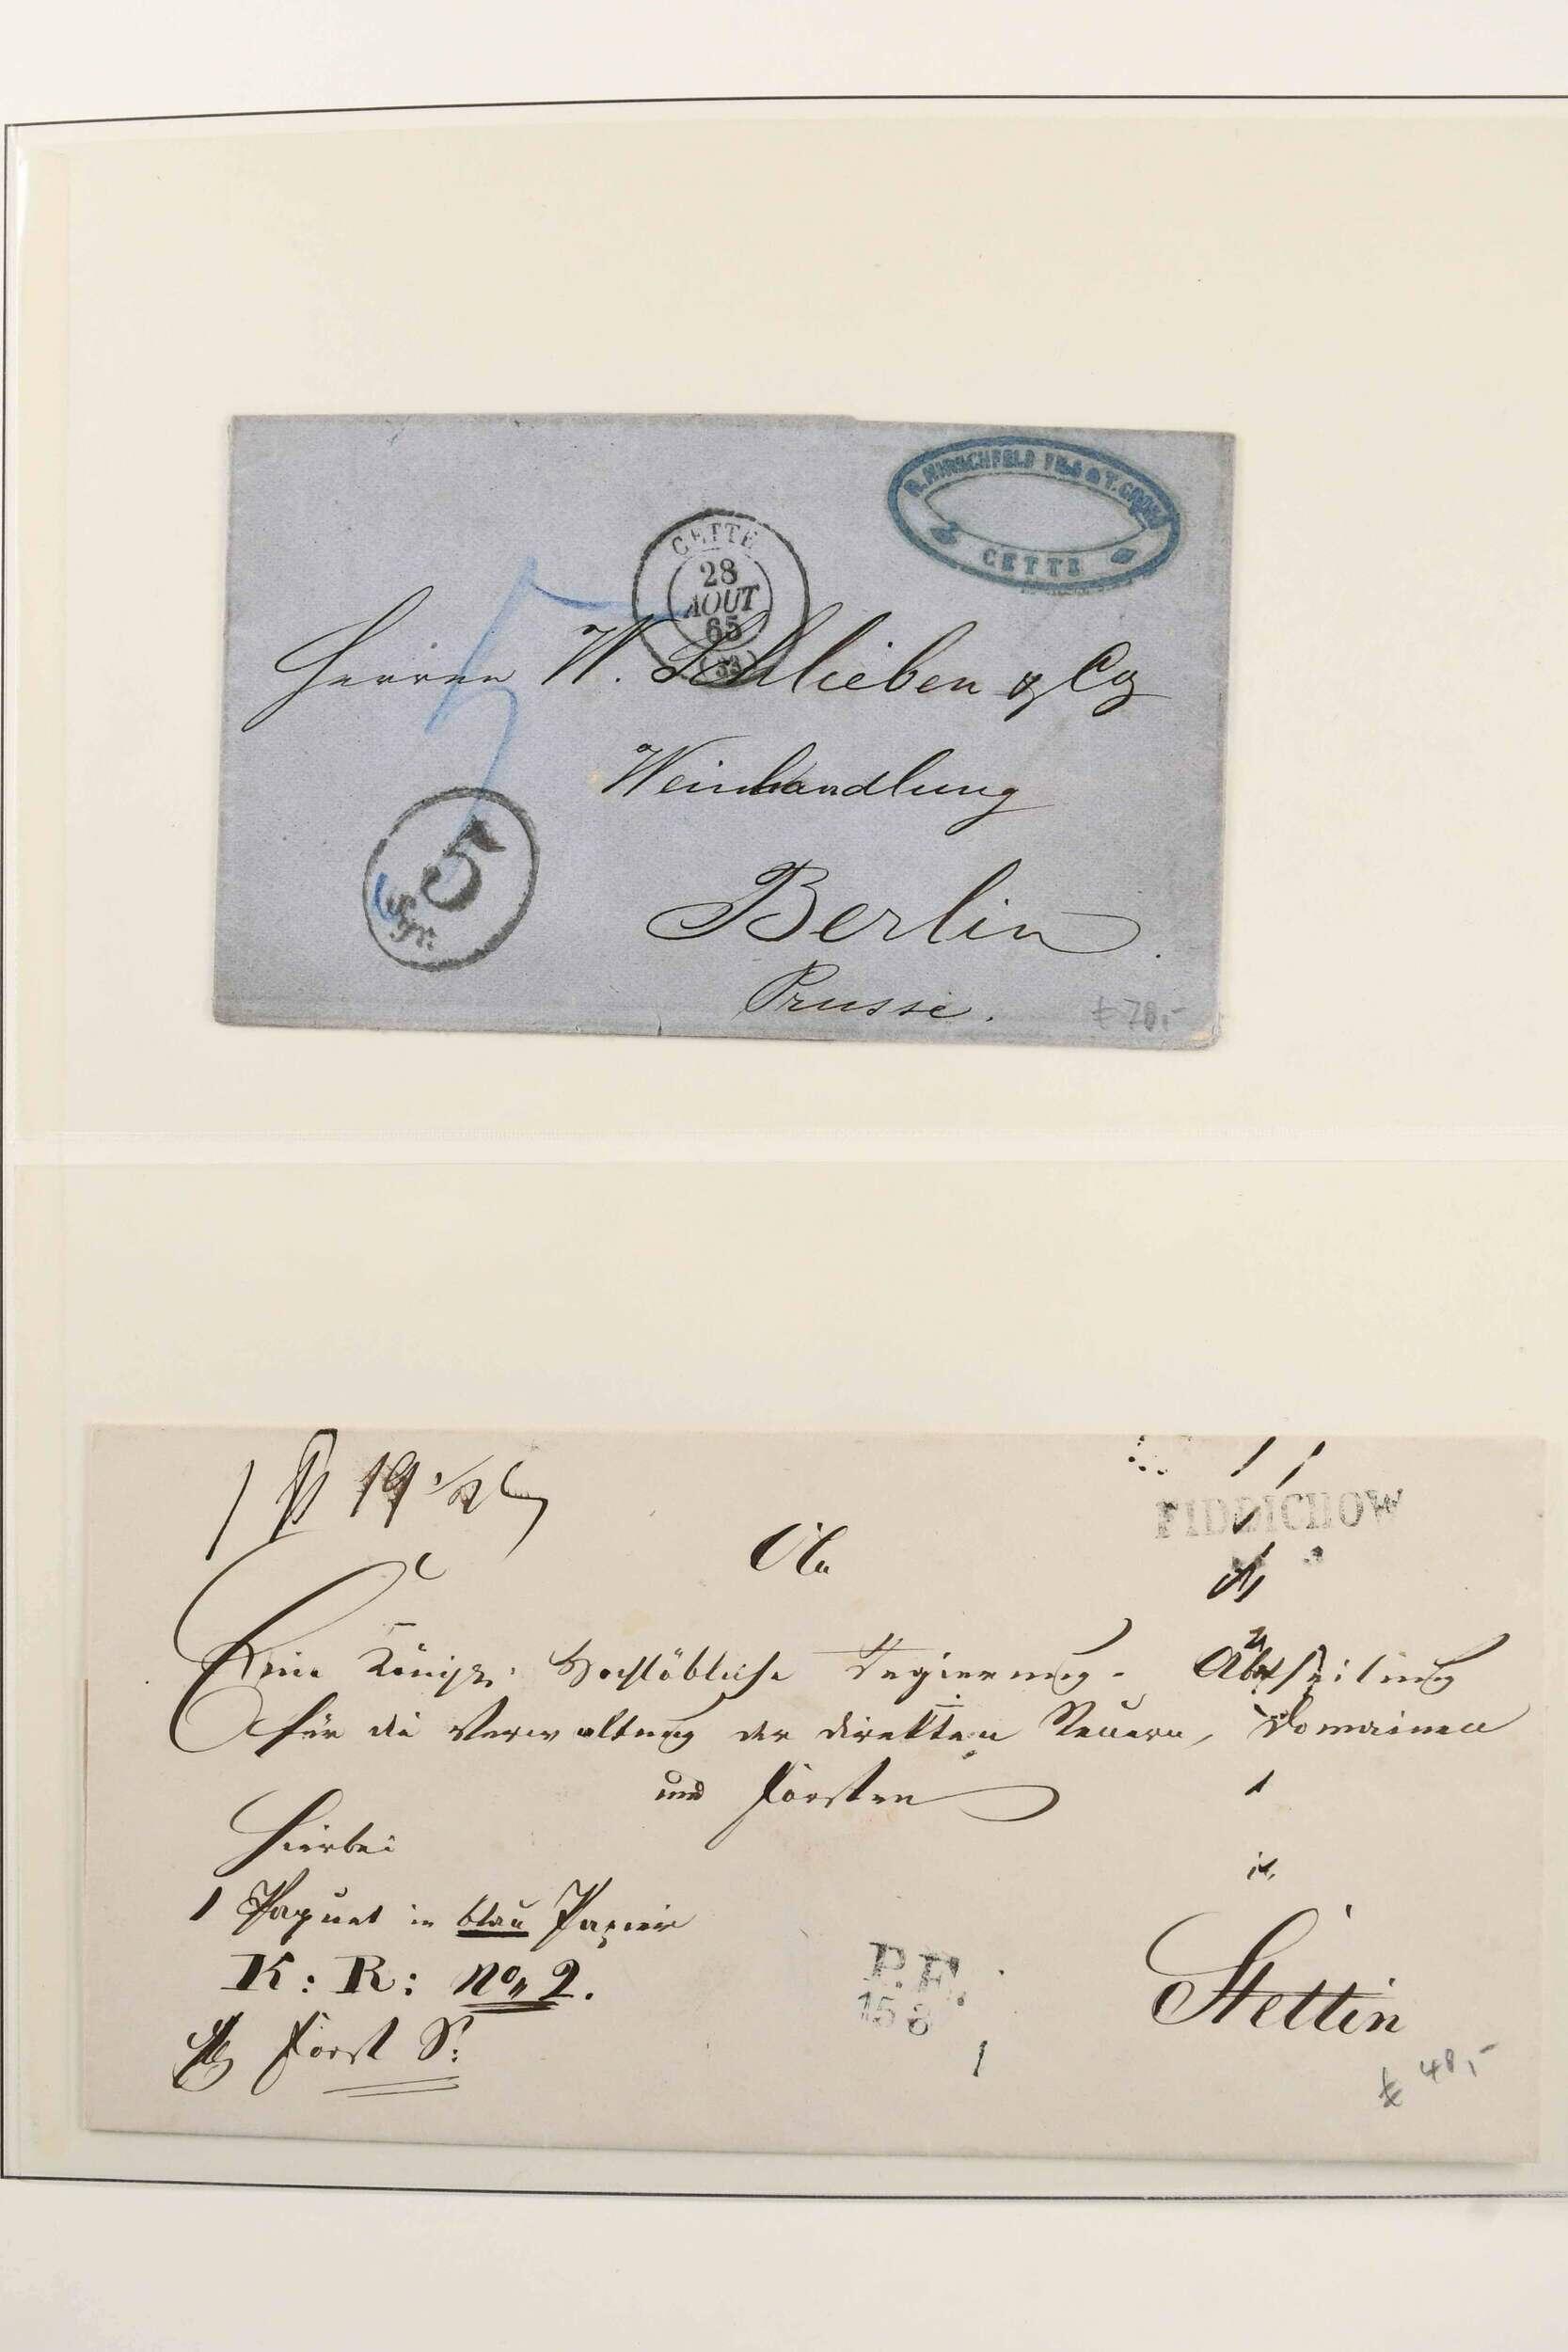 R. HIRSCHFELD FILS & T.
CETTE
CETTE
28
AOUT
65
(33)
Herren W. Schlieben & Co
Weinhandlung
Berlin
Prusse.
5
5
Sgr.
€ 70,-
1 ℔ 19
FIDDICHOW
An
Eine Königl. Hochlöbliche Regierung. Abtheilung
für die Verwaltung der direkten Steuern, Domainen
und Forsten
Hierbei
1 Paquet in blau Papier
K: R: No 2.
Forst S:
in
Stettin
P.E.
15 8
1
€ 48,-